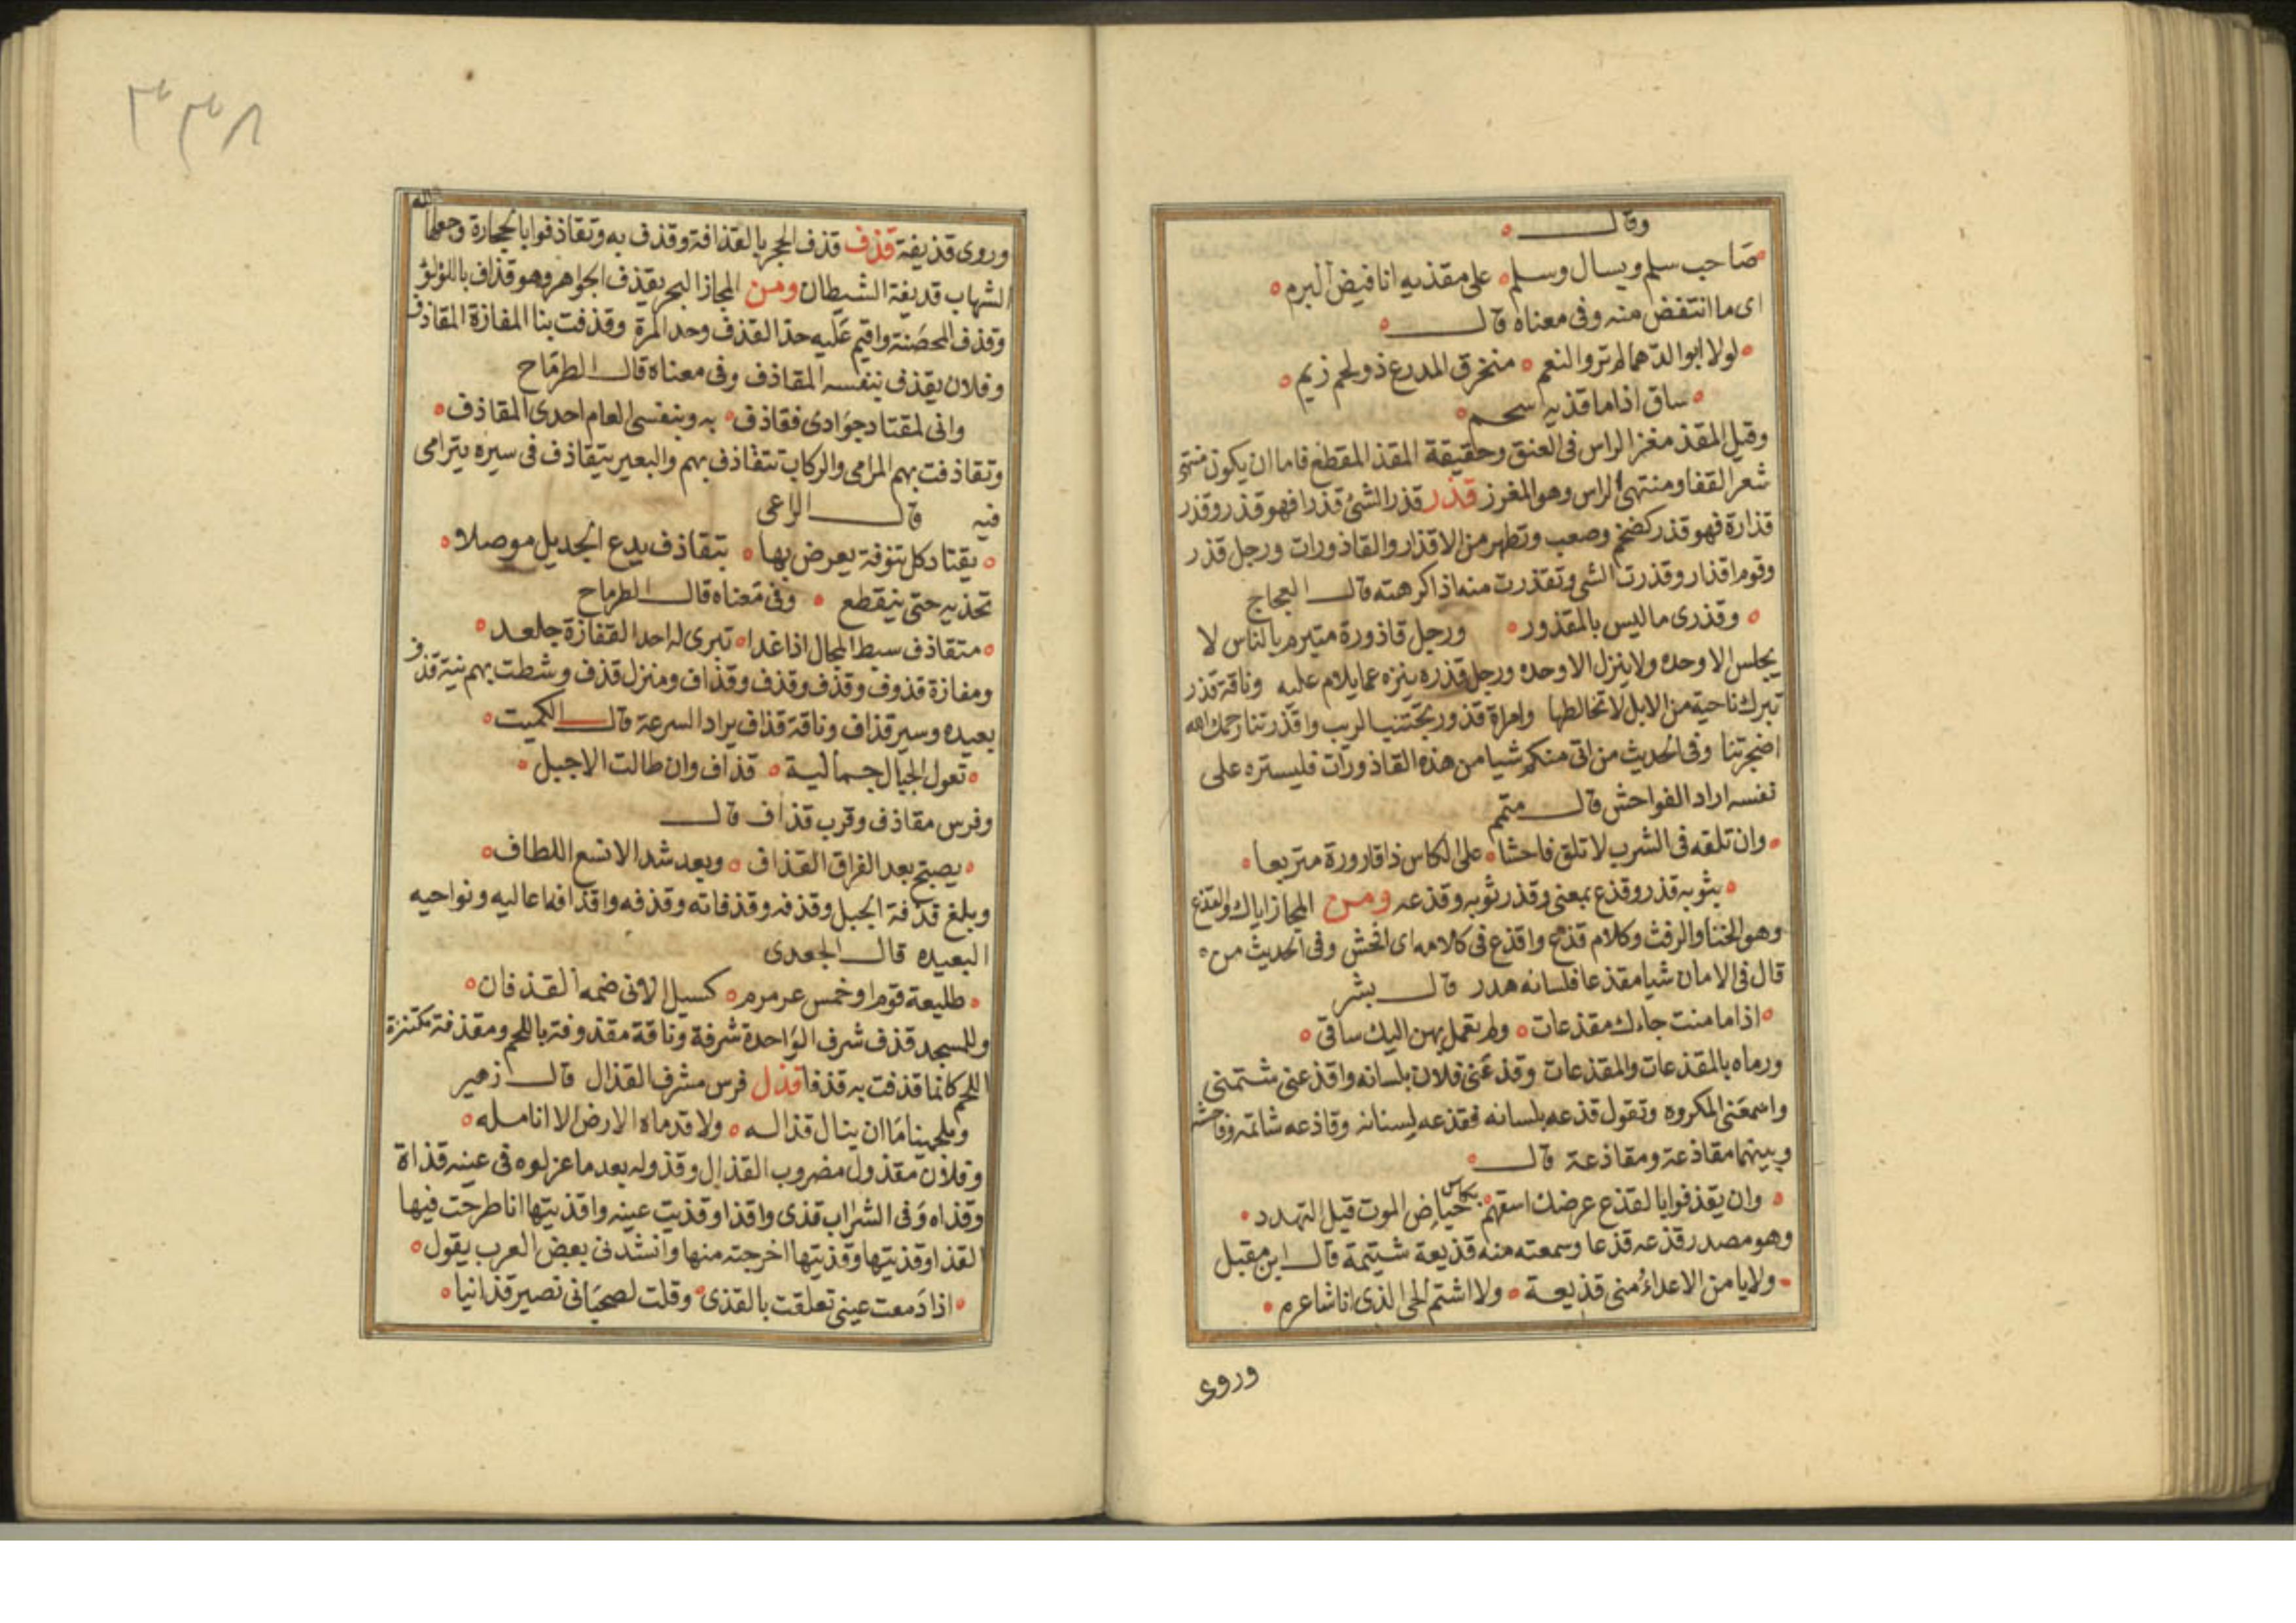 وقال
صاحب سلم ويسال وسلم على مقذيه انا فيض البرم
اى ما انتفض منه وفى معناه قال
لولا ابو الدهما لم تروا النعم منخرق المدرع ذو لحم زيم
ساق اذا ما قذيه اسحم
وقيل المقذ مغرز الراس فى العنق وحقيقة المقذ المقطع فاما ان يكون منتهى
شعر القفا ومنتهى الراس وهو المغرز قذر قذر الشئ قذرا فهو قذر وقذر
قذارة فهو قذر كضخم وصعب وتطهر من الاقذار والقاذورات ورجل قذر
وقوم اقذار وقذرت الشى وتقذرت منه اذا كرهته قال العجاج
وقذرى ما ليس بالمقذور ورجل قاذورة متبرم بالناس لا
يجلس الا وحده ولا ينزل الا وحده ورجل قذره ينزه عما يلام عليه وناقة قذر
تبرك ناحية من الابل لا تخالطها وامراة قذور تجتنب الريب واقذرتنا رحمك الله
اضجرتنا وفى الحديث من اتى منكم شيا من هذه القاذورات فليستره على
نفسه اراد الفواحش قال متمم
وان تلقه فى الشرب لا تلق فاحشا على الكاس ذا قارورة متربعا
بثوبه قذر وقذع بمعنى وقذر ثوبه وقذعه ومن المجاز اياك والقذع
وهو الخنا والرفث وكلام قذع واقذع فى كلامه اى افحش وفى الحديث من
قال فى الامان شيا مقذعا فلسانه هدر قال بشر
اذا ما منت جاءك مقذعات ولم تعمل بهن اليك ساقى
ورماه بالمقذعات والمقذعات وقذعنى فلان بلسانه واقذعنى شتمنى
واسمعنى المكروه وتقول قذعه بلسانه فقذعه بسنانه وقاذعه شاتمه وفاحشه
وبينهما مقاذعة ومقاذعة قال
وان يقذفوا بالقذع عرضك اسقهم بكاس حياض الموت قبل التهدد
وهو مصدر قذعه قذعا وسمعته منه قذيعة شتيمة قال ابن مقبل
ولا يامن الاعداء منى قذيعة ولا اشتم الحى الذى انا شاعرم
وروى
٣٣٨
وروى قذيفة قذف قذف الحجر بالقذافة وقذف به وتقاذفوا بالحجارة وجعل الله
الشهاب قذيفة الشيطان ومن المجاز البحر يقذف الجواهر وهو قذاف باللؤلؤ
وقذف المحصنة واقيم عليه حد القذف وحد المرة وقذفت بنا المفازة المقاذف
وفلان يقذف بنفسه المقاذف وفى معناه قال الطرماح
وانى لمقتاد جوادى فقاذف به وبنفسى العام احدى المقاذف
وتقاذفت بهم المرامى والركاب تتقاذف بهم والبعير يتقاذف فى سيره يترامى
فيه قال الراعى
يقتاد كل تنوفة يعرض بها بتقاذف يدع الجديل موصلا
تجذبه حتى ينقطع وفى معناه قال الطرماح
متقاذف سبط المحال اذا غدا تبرى له احد القفازة جلعد
ومفازة قذوف وقذف وقذف وقذاف ومنزل قذف وشطت بهم نية قذف
بعيده وسير قذاف وناقة قذاف يراد السرعة قال الكميت
تعول الجبال جمالية قذاف وان طالت الاجبل
وفرس مقاذف وقرب قذاف قال
يصبح بعد الفراق القذاف وبعد شد الانسع اللطاف
وبلغ قذفة الجبل وقذفه وقذفاته وقذفه واقذافه اعاليه ونواحيه
البعيده قال الجعدى
طليعة قوم او خمس عرمرم كسيل الاتى ضمه القذفان
وللمسجد قذف شرف الواحدة شرفة وناقة مقذوفة باللحم ومقذفة مكتنزة
اللحم كانما قذفت به قذفا قذل فرس مشرف القذال قال زهير
وملجمنا ما ان ينال قذاله ولا قدماه الارض الا انامله
وفلان مقذول مضروب القذال وقذوله بعد ما عزلوه فى عينه قذاة
وقذاه وفى الشراب قذى واقذا وقذيت عينه واقذيتها انا طرحت فيها
القذا وقذيتها وقذيتها اخرجته منها وانشدنى بعض العرب يقول
اذا دمعت عينى تعلقت بالقذى وقلت لصحبانى تصير قذانيا